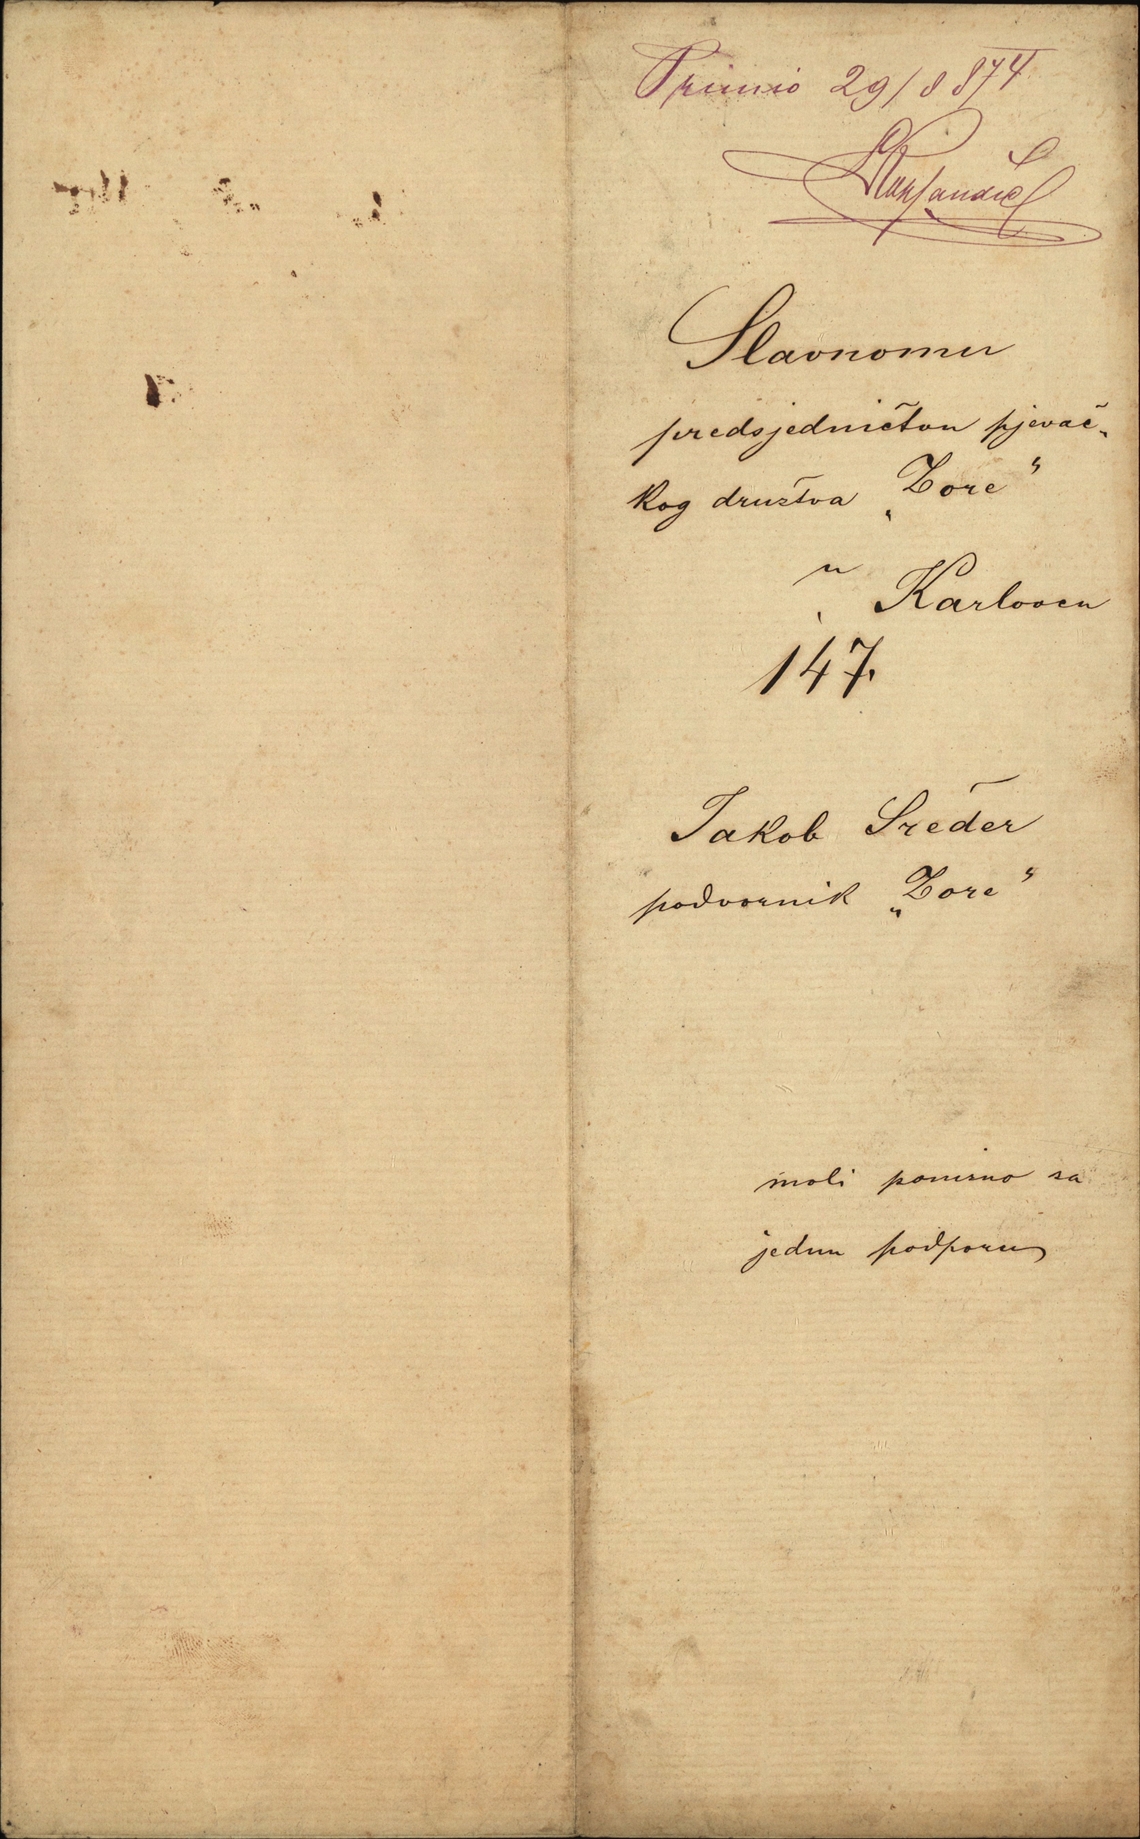 Primio 29/8 874
Slavnomu
predsjedničtvu pjevač„
kog družtva „Zore“
u Karlovcu
147.
Jakob Sreder
podvornik „Zore“
moli ponizno za
jednu podporu